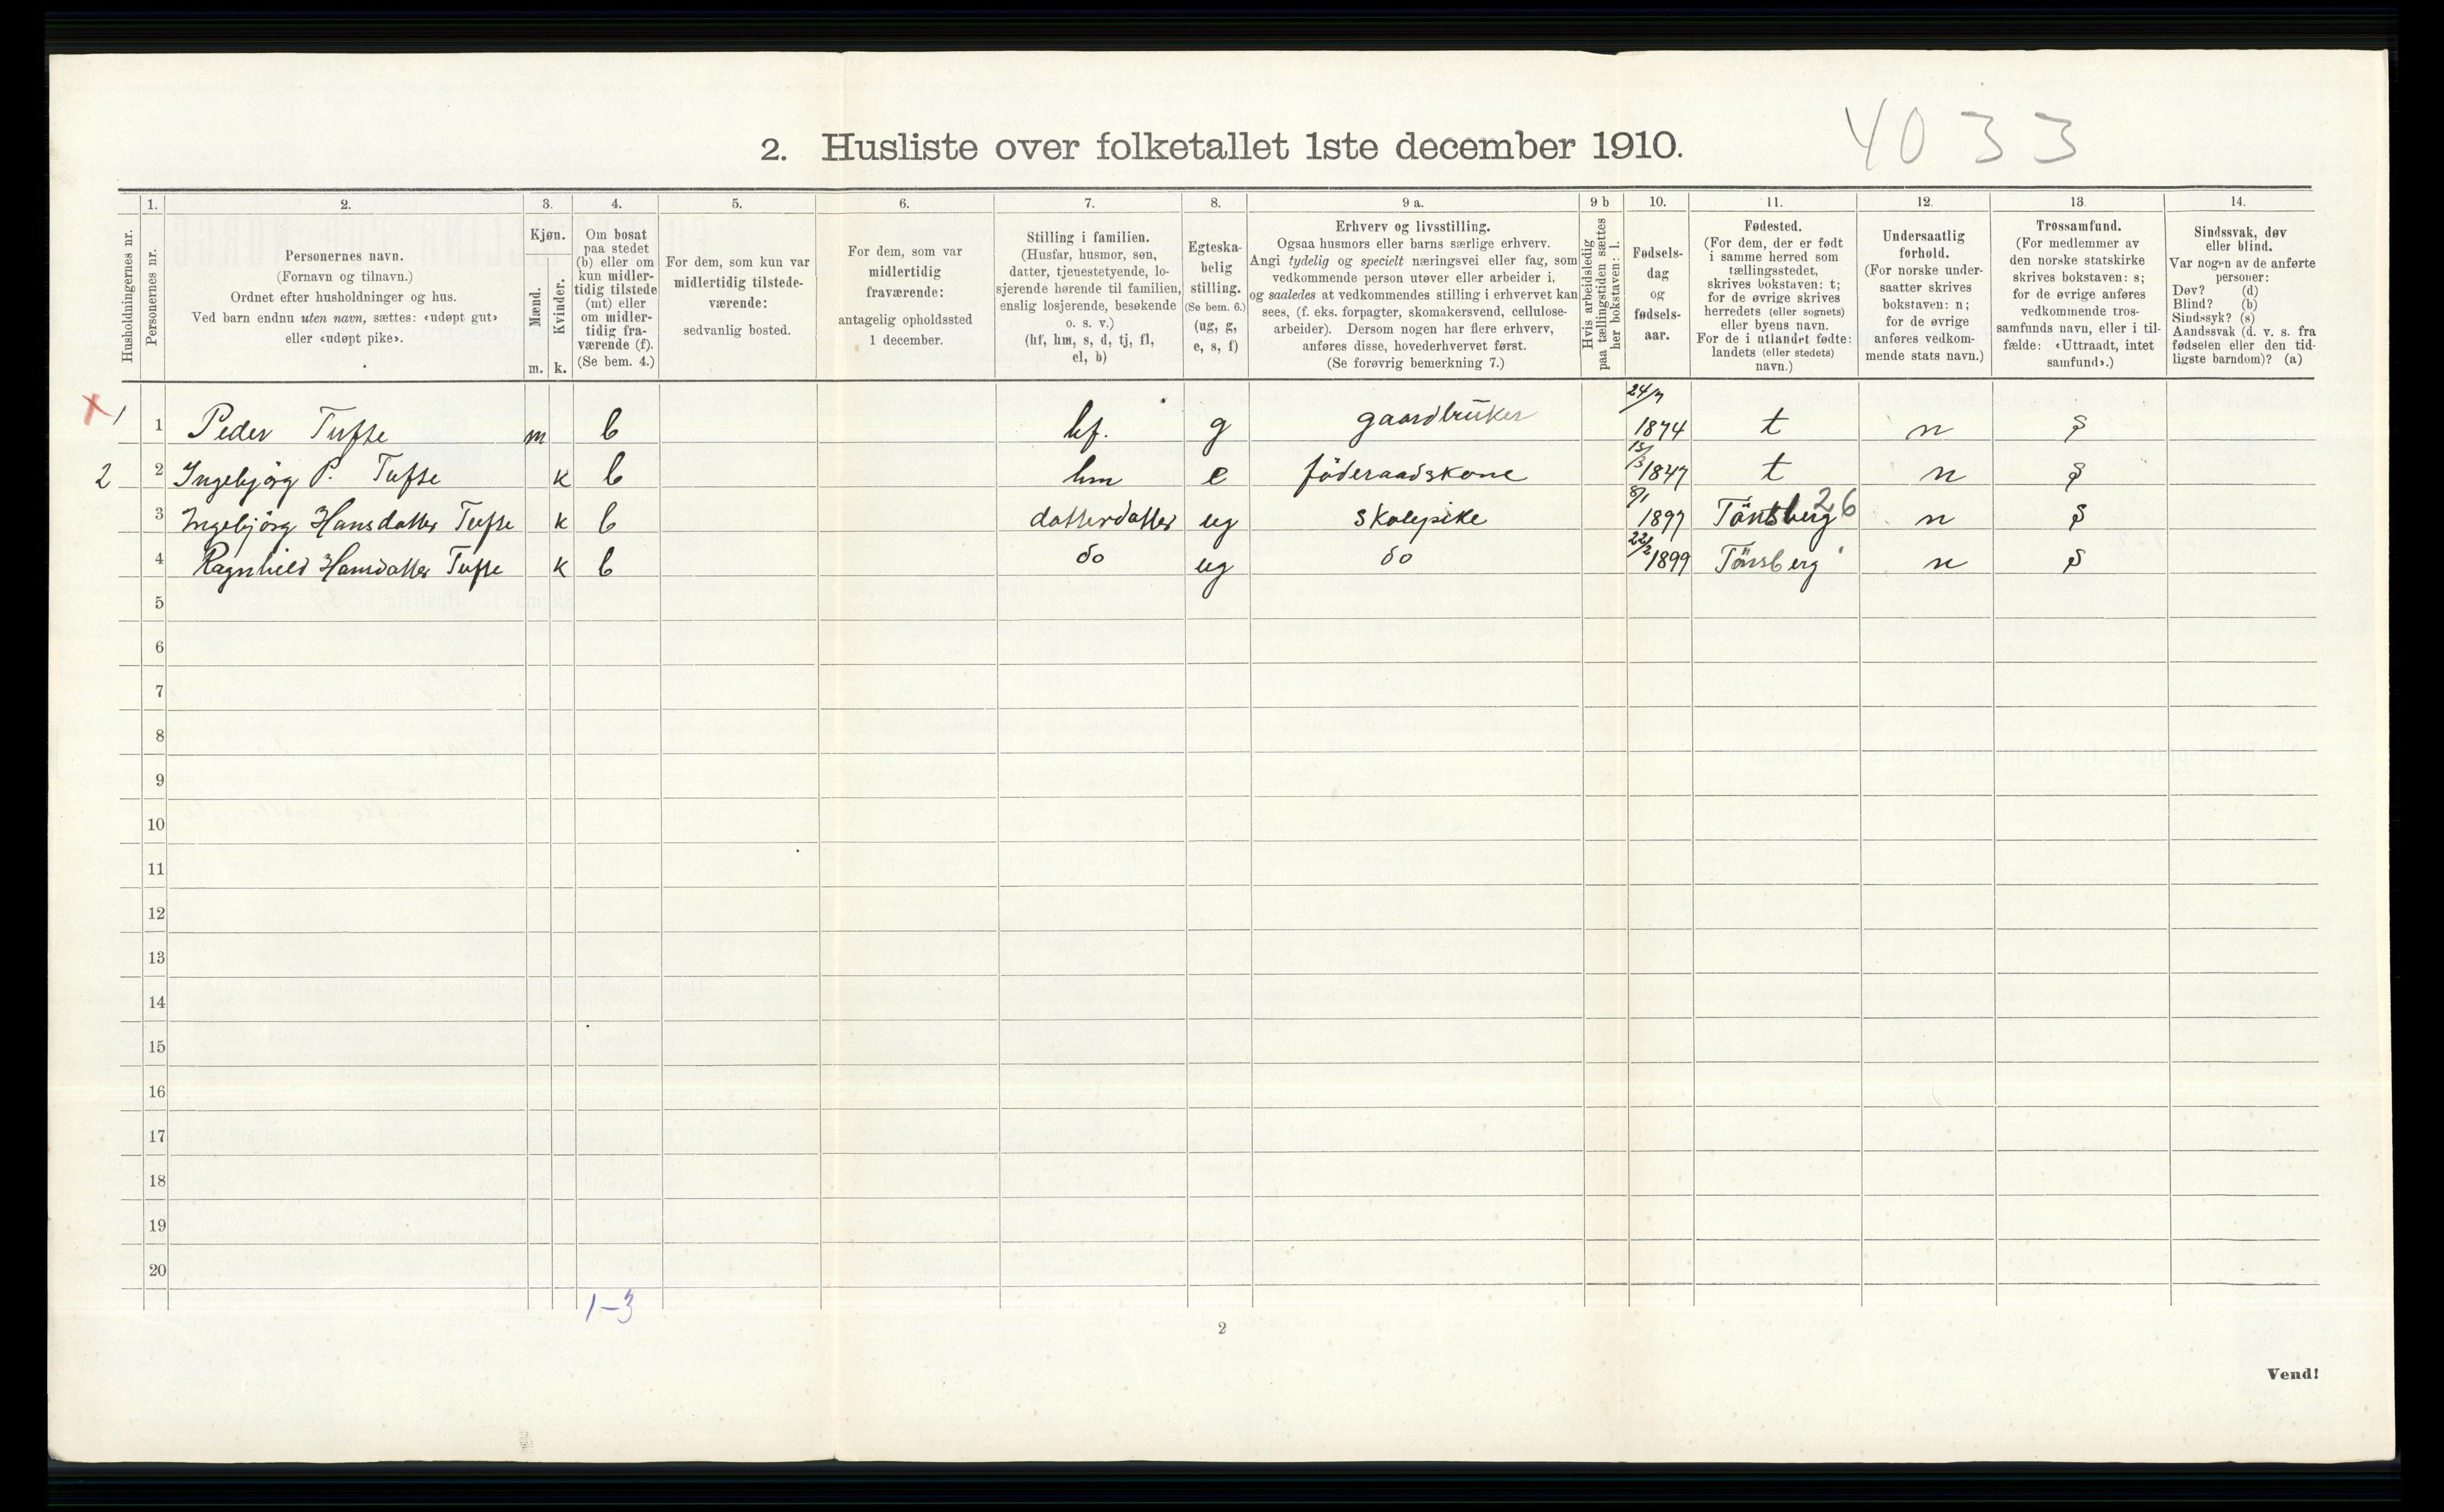 2. Husliste over folketallet 1ste december 1910.
4033
Husholdningernes nr.
1.
Personernes nr.
2.
Personernes navn.
(Fornavn og tilnavn.)
Ordnet efter husholdninger og hus.
Ved barn endnu uten navn, sættes: «udøpt gut»
eller «udøpt pike».
3.
Kjøn.
Mænd.
Kvinder.
m. k.
4.
Om bosat
paa stedet
(b) eller om
kun midler-
tidig tilstede
(mt) eller
om midler-
tidig fra-
værende (f).
(Se bem. 4.)
5.
For dem, som kun var
midlertidig tilstede-
værende:
sedvanlig bosted.
6.
For dem, som var
midlertidig
fraværende:
antagelig opholdssted
1 december.
7.
Stilling i familien.
(Husfar, husmor, søn,
datter, tjenestetyende, lo-
sjerende hørende til familien,
enslig losjerende, besøkende
o. s. v.)
(hf, hm, s, d, tj, fl,
el, b)
8.
Egteska-
belig
stilling.
(Se bem. 6.)
(ug, g,
e, s, f)
9 a.
Erhverv og livsstilling.
Ogsaa husmors eller barns særlige erhverv.
Angi tydelig og specielt næringsvei eller fag, som
vedkommende person utøver eller arbeider i,
og saaledes at vedkommendes stilling i erhvervet kan
sees, (f. eks. forpagter, skomakersvend, cellulose-
arbeider). Dersom nogen har flere erhverv,
anføres disse, hovederhvervet først.
(Se forøvrig bemerkning 7.)
9 b
Hvis arbeidsledig
paa tællingstiden sættes
her bokstaven: l.
10.
Fødsels-
dag
og
fødsels-
aar.
11.
Fødested.
(For dem, der er født
i samme herred som
tællingsstedet,
skrives bokstaven: t;
for de øvrige skrives
herredets (eller sognets)
eller byens navn.
For de i utlandet fødte:
landets (eller stedets)
navn.)
12.
Undersaatlig
forhold.
(For norske under-
saatter skrives
bokstaven: n;
for de øvrige
anføres vedkom-
mende stats navn.)
13.
Trossamfund.
(For medlemmer av
den norske statskirke
skrives bokstaven: s;
for de øvrige anføres
vedkommende tros-
samfunds navn, eller i til-
fælde: «Uttraadt, intet
samfund».)
14.
Sindssvak, døv
eller blind.
Var nogen av de anførte
personer:
Døv? (d)
Blind? (b)
Sindssyk? (s)
Aandssvak (d. v. s. fra
fødselen eller den tid-
ligste barndom)? (a)
X 1 1 Peder Tufte m b hf. g gaardbruker 24/7 1874 t n s
2 2 Ingebjörg P. Tufte k b hm e föderaadskone 13/3 1847 t n s
3 Ingebjörg Hansdatter Tufte k b datterdatter ug skolepike 8/1 1897 Tönsberg 26 n s
4 Ragnhild Hansdatter Tufte k b do ug do 22/2 1899 Tönsberg n s
5
6
7
8
9
10
11
12
13
14
15
16
17
18
19
20
1-3
2
Vend!